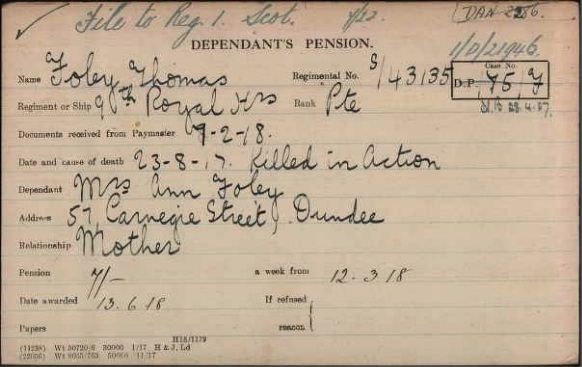 File to Reg. 1. Scot. 1/22.
DAN 2286.
DEPENDANT'S PENSION.
1/D/21946.
Name Foley Thomas Regimental No. S/43135 Case No.
D.P. 75/F
Regiment or Ship 9th Royal Hrs Rank Pte
Documents received from Paymaster 9-2-18.
Date and cause of death 23-8-17. Killed in Action
Dependant Mrs Ann Foley
Address 57, Carnegie Street, Dundee
Relationship Mother
Pension 7/- a week from 12.3.18
Date awarded 13.6.18 If refused
Papers reason
H18/1179
(11238) Wt 30720/6 50000 1/17 H & J, Ld
50000 11/17